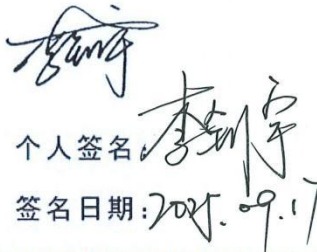 个人签名:李剑宇
签名日期:2025.09.17